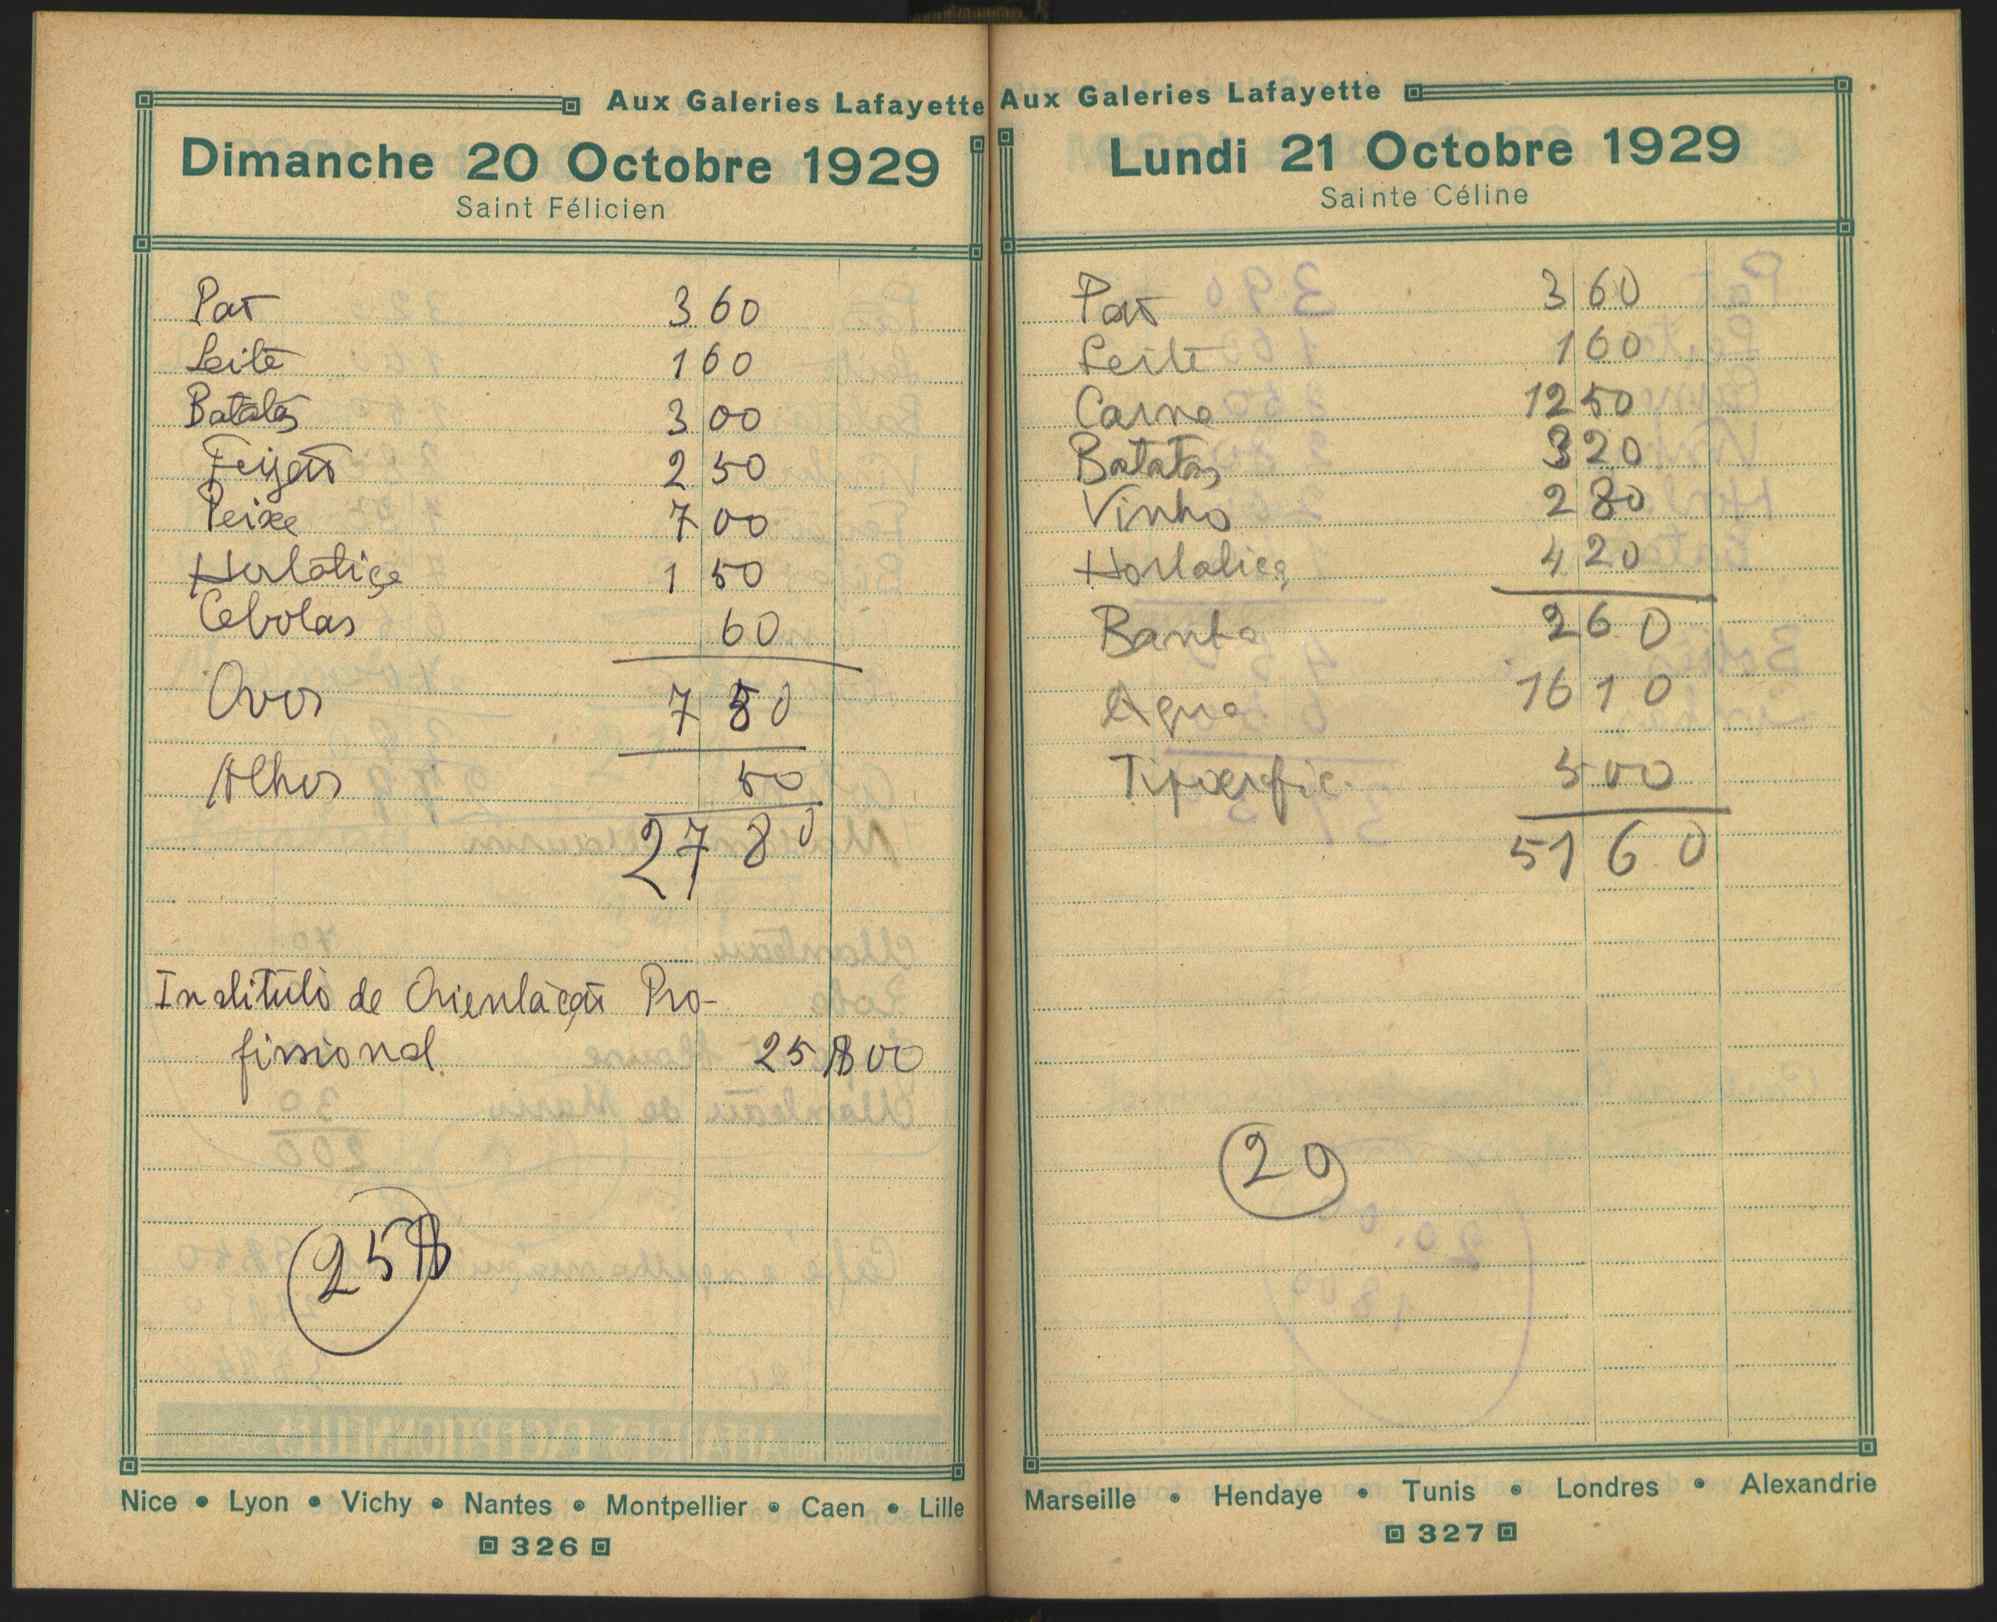 Aux Galeries Lafayette
Dimanche 20 Octobre 1929
Saint Félicien
Pão 3 60
Leite 1 60
Batatas 3 00
Feijão 2 50
Peixe 7 00
Hortaliça 1 50
Cebolas 60
Ovos 7 50
Alhos 50
27 80
Instituto de Orientação Pro-
fissional 25$00
25$
Nice • Lyon • Vichy • Nantes • Montpellier • Caen • Lille
326
Aux Galeries Lafayette
Lundi 21 Octobre 1929
Sainte Céline
Pão 3 60
Leite 1 60
Carne 12 50
Batatas 3 20
Vinho 2 80
Hortaliça 4 20
Banha 2 60
Agua 16 10
Tipografia 5 00
51 60
20
Marseille • Hendaye • Tunis • Londres • Alexandrie
327